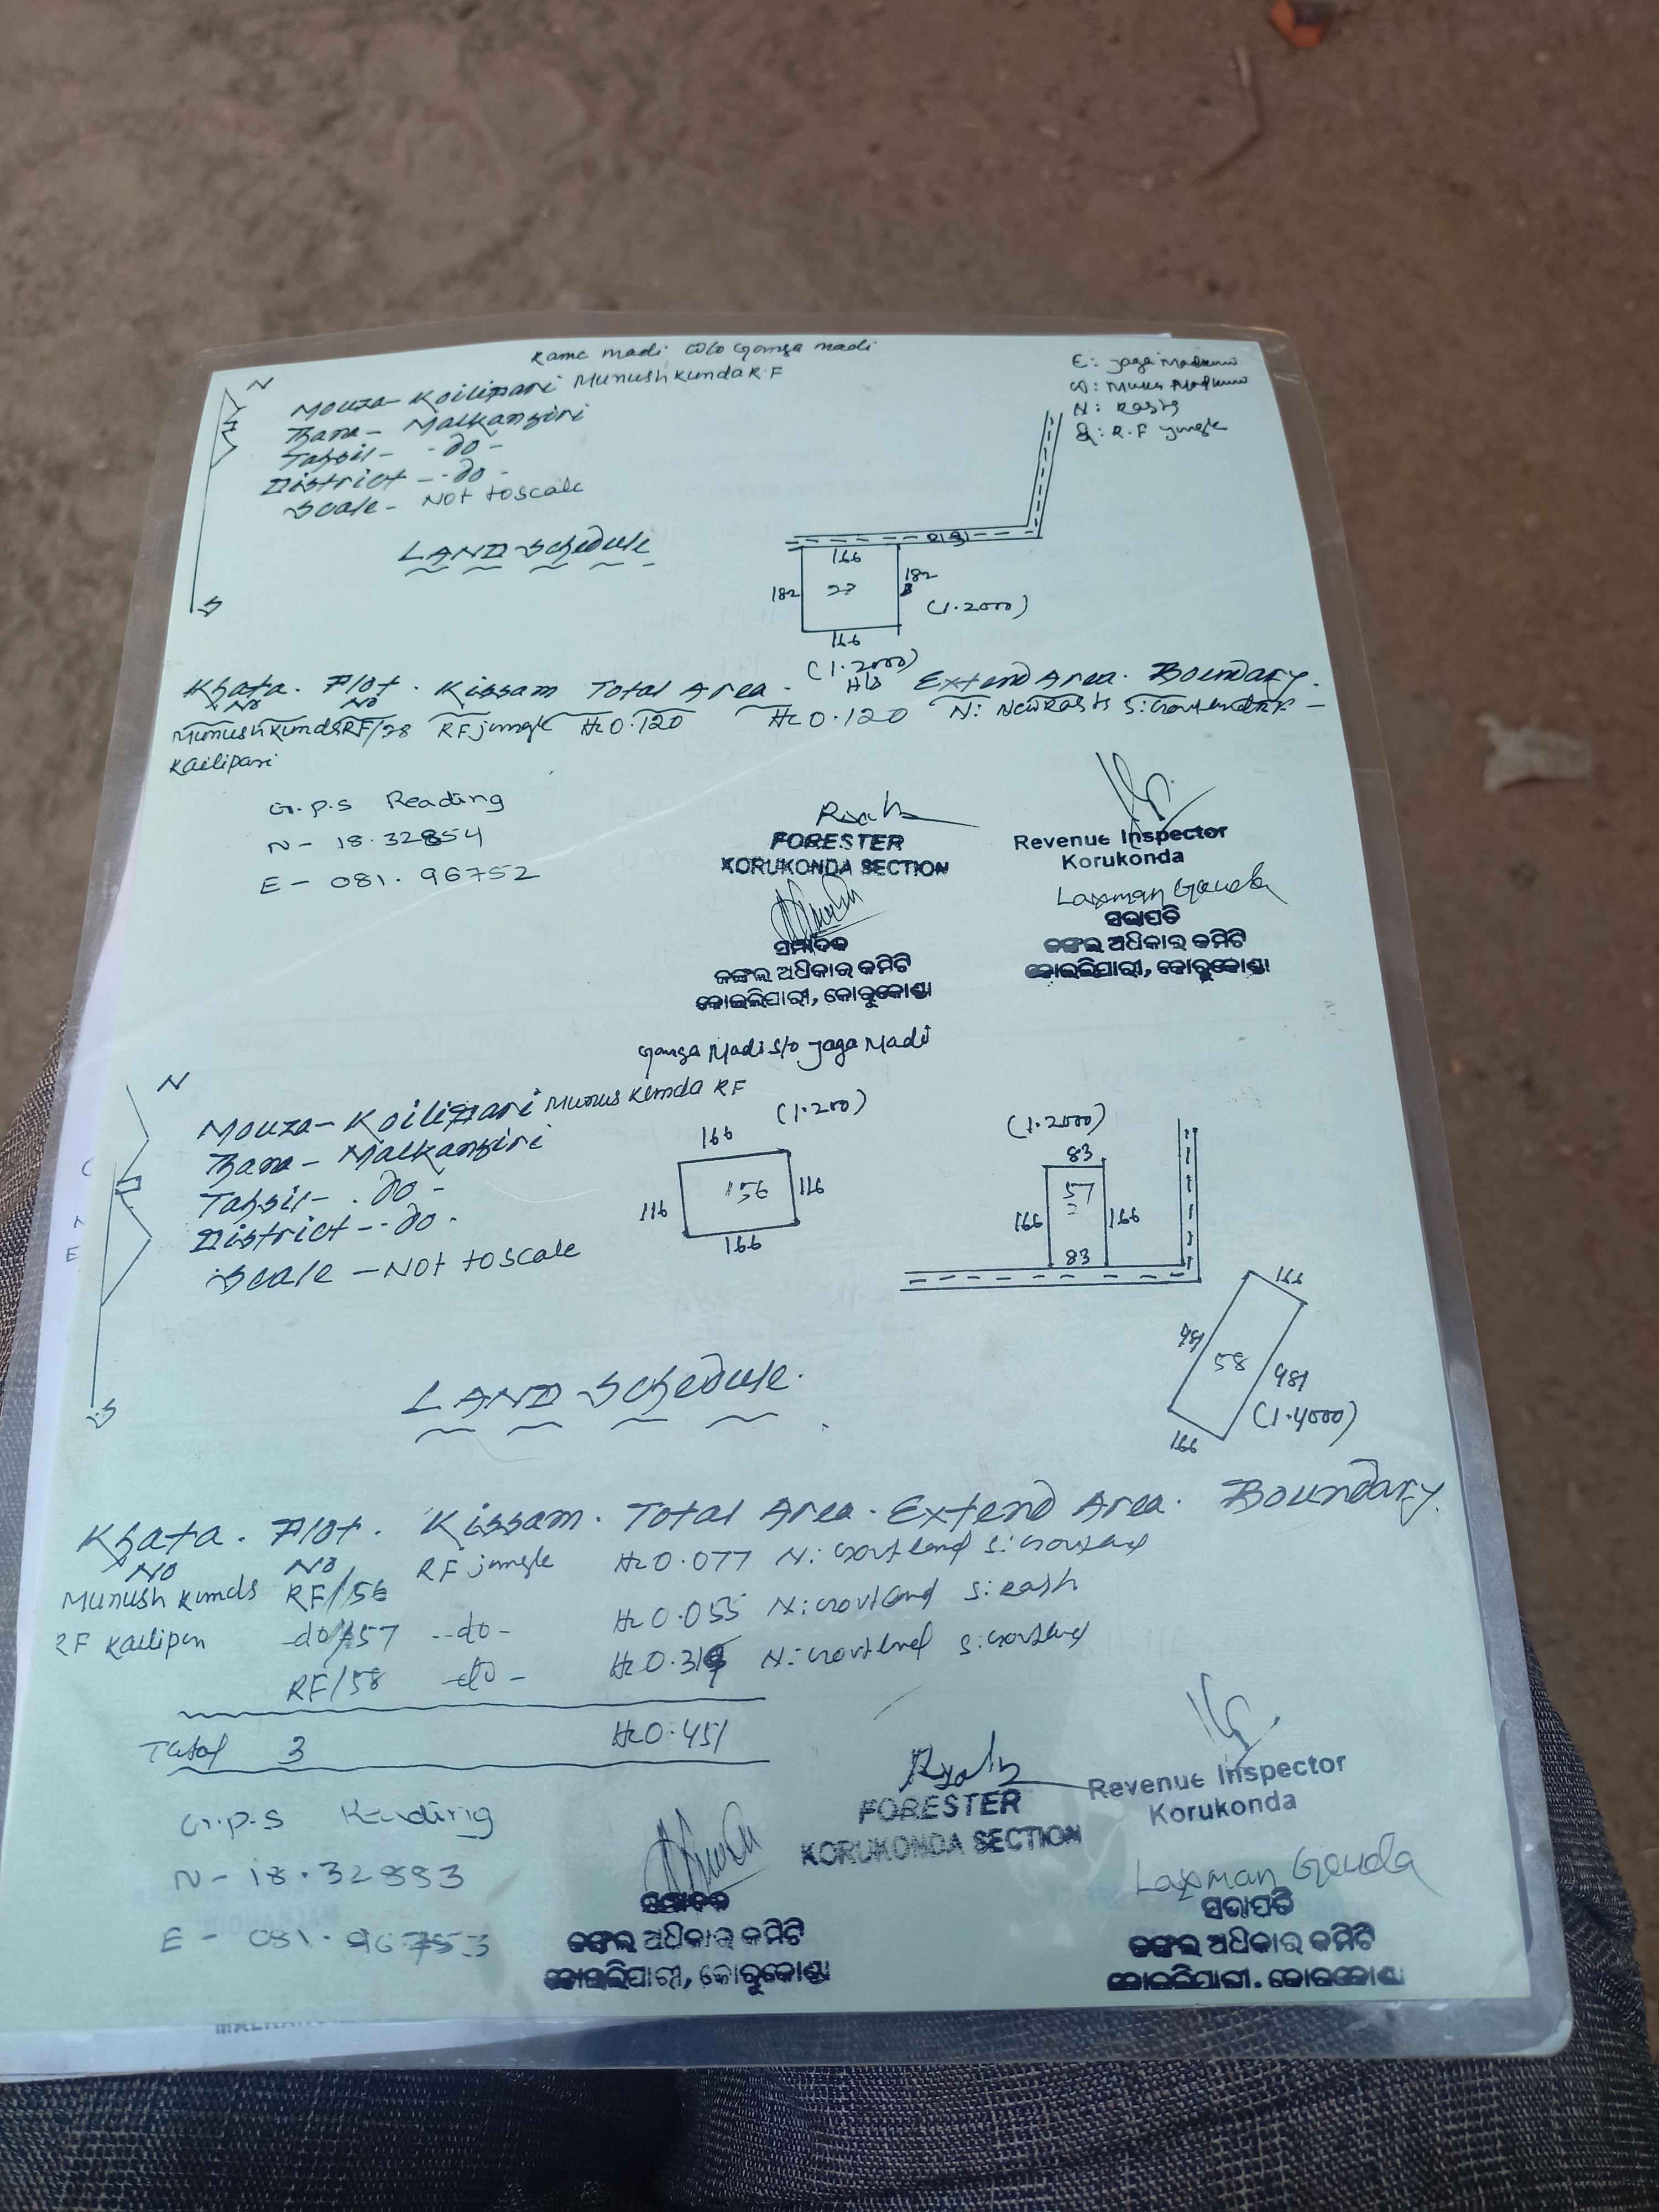 Rame madi W/o Ganga madi
E: Jaga Madkami
W: Muka Madkami
N: Rasta
S: R.F jungle
N
Mouza- Koilipari Munushkunda R.F
Thana- Malkangiri
Tahsil- -do-
District - -do-
Scale- Not to scale
S
LAND Schedule
166
182
182
(1.2000)
166
(1.2000)
Khata No. Plot No. Kissam Total Area. Extend Area. Boundary.
Munushkunda RF/28 RF jungle Hc 0.120 Hc 0.120 N: New Rasta
Kailipari
G.P.S Reading
N- 18.32854
E- 081.96752
FORESTER
KORUKONDA SECTION
Revenue Inspector
Korukonda
Laxman Gouda
ସଭାପତି
ଜଙ୍ଗଲ ଅଧିକାର କମିଟି
କୋଇଲିପାରୀ, କୋରୁକୋଣ୍ଡା
ସମ୍ପାଦକ
ଜଙ୍ଗଲ ଅଧିକାର କମିଟି
କୋଇଲିପାରୀ, କୋରୁକୋଣ୍ଡା
Ganga Madi S/o Jaga Madi
N
Mouza- Koilipari Munus Kunda RF
Thana- Malkangiri
Tahsil- .do-
District - -do.
Scale - Not to scale
S
(1.200)
166
56
116
116
166
(1.2000)
83
57
166
166
83
166
481
58
481
(1.4000)
166
LAND Schedule.
Khata No. Plot No. Kissam. Total Area. Extend Area. Boundary.
Munush Kunda RF/56 RF jungle Hc 0.077 N: Govt land S: Govt land
RF Kailipari -do/57 -do- Hc 0.055 N: Govt land S: Rasta
RF/58 -do- N: Govt land S: Govt land
Total 3 Hc 0.451
G.P.S Reading
N- 18.32883
E- 081.96753
FORESTER
KORUKONDA SECTION
Revenue Inspector
Korukonda
Laxman Gouda
ସଭାପତି
ଜଙ୍ଗଲ ଅଧିକାର କମିଟି
କୋଇଲିପାରୀ, କୋରୁକୋଣ୍ଡା
ସମ୍ପାଦକ
ଜଙ୍ଗଲ ଅଧିକାର କମିଟି
କୋଇଲିପାରୀ, କୋରୁକୋଣ୍ଡା